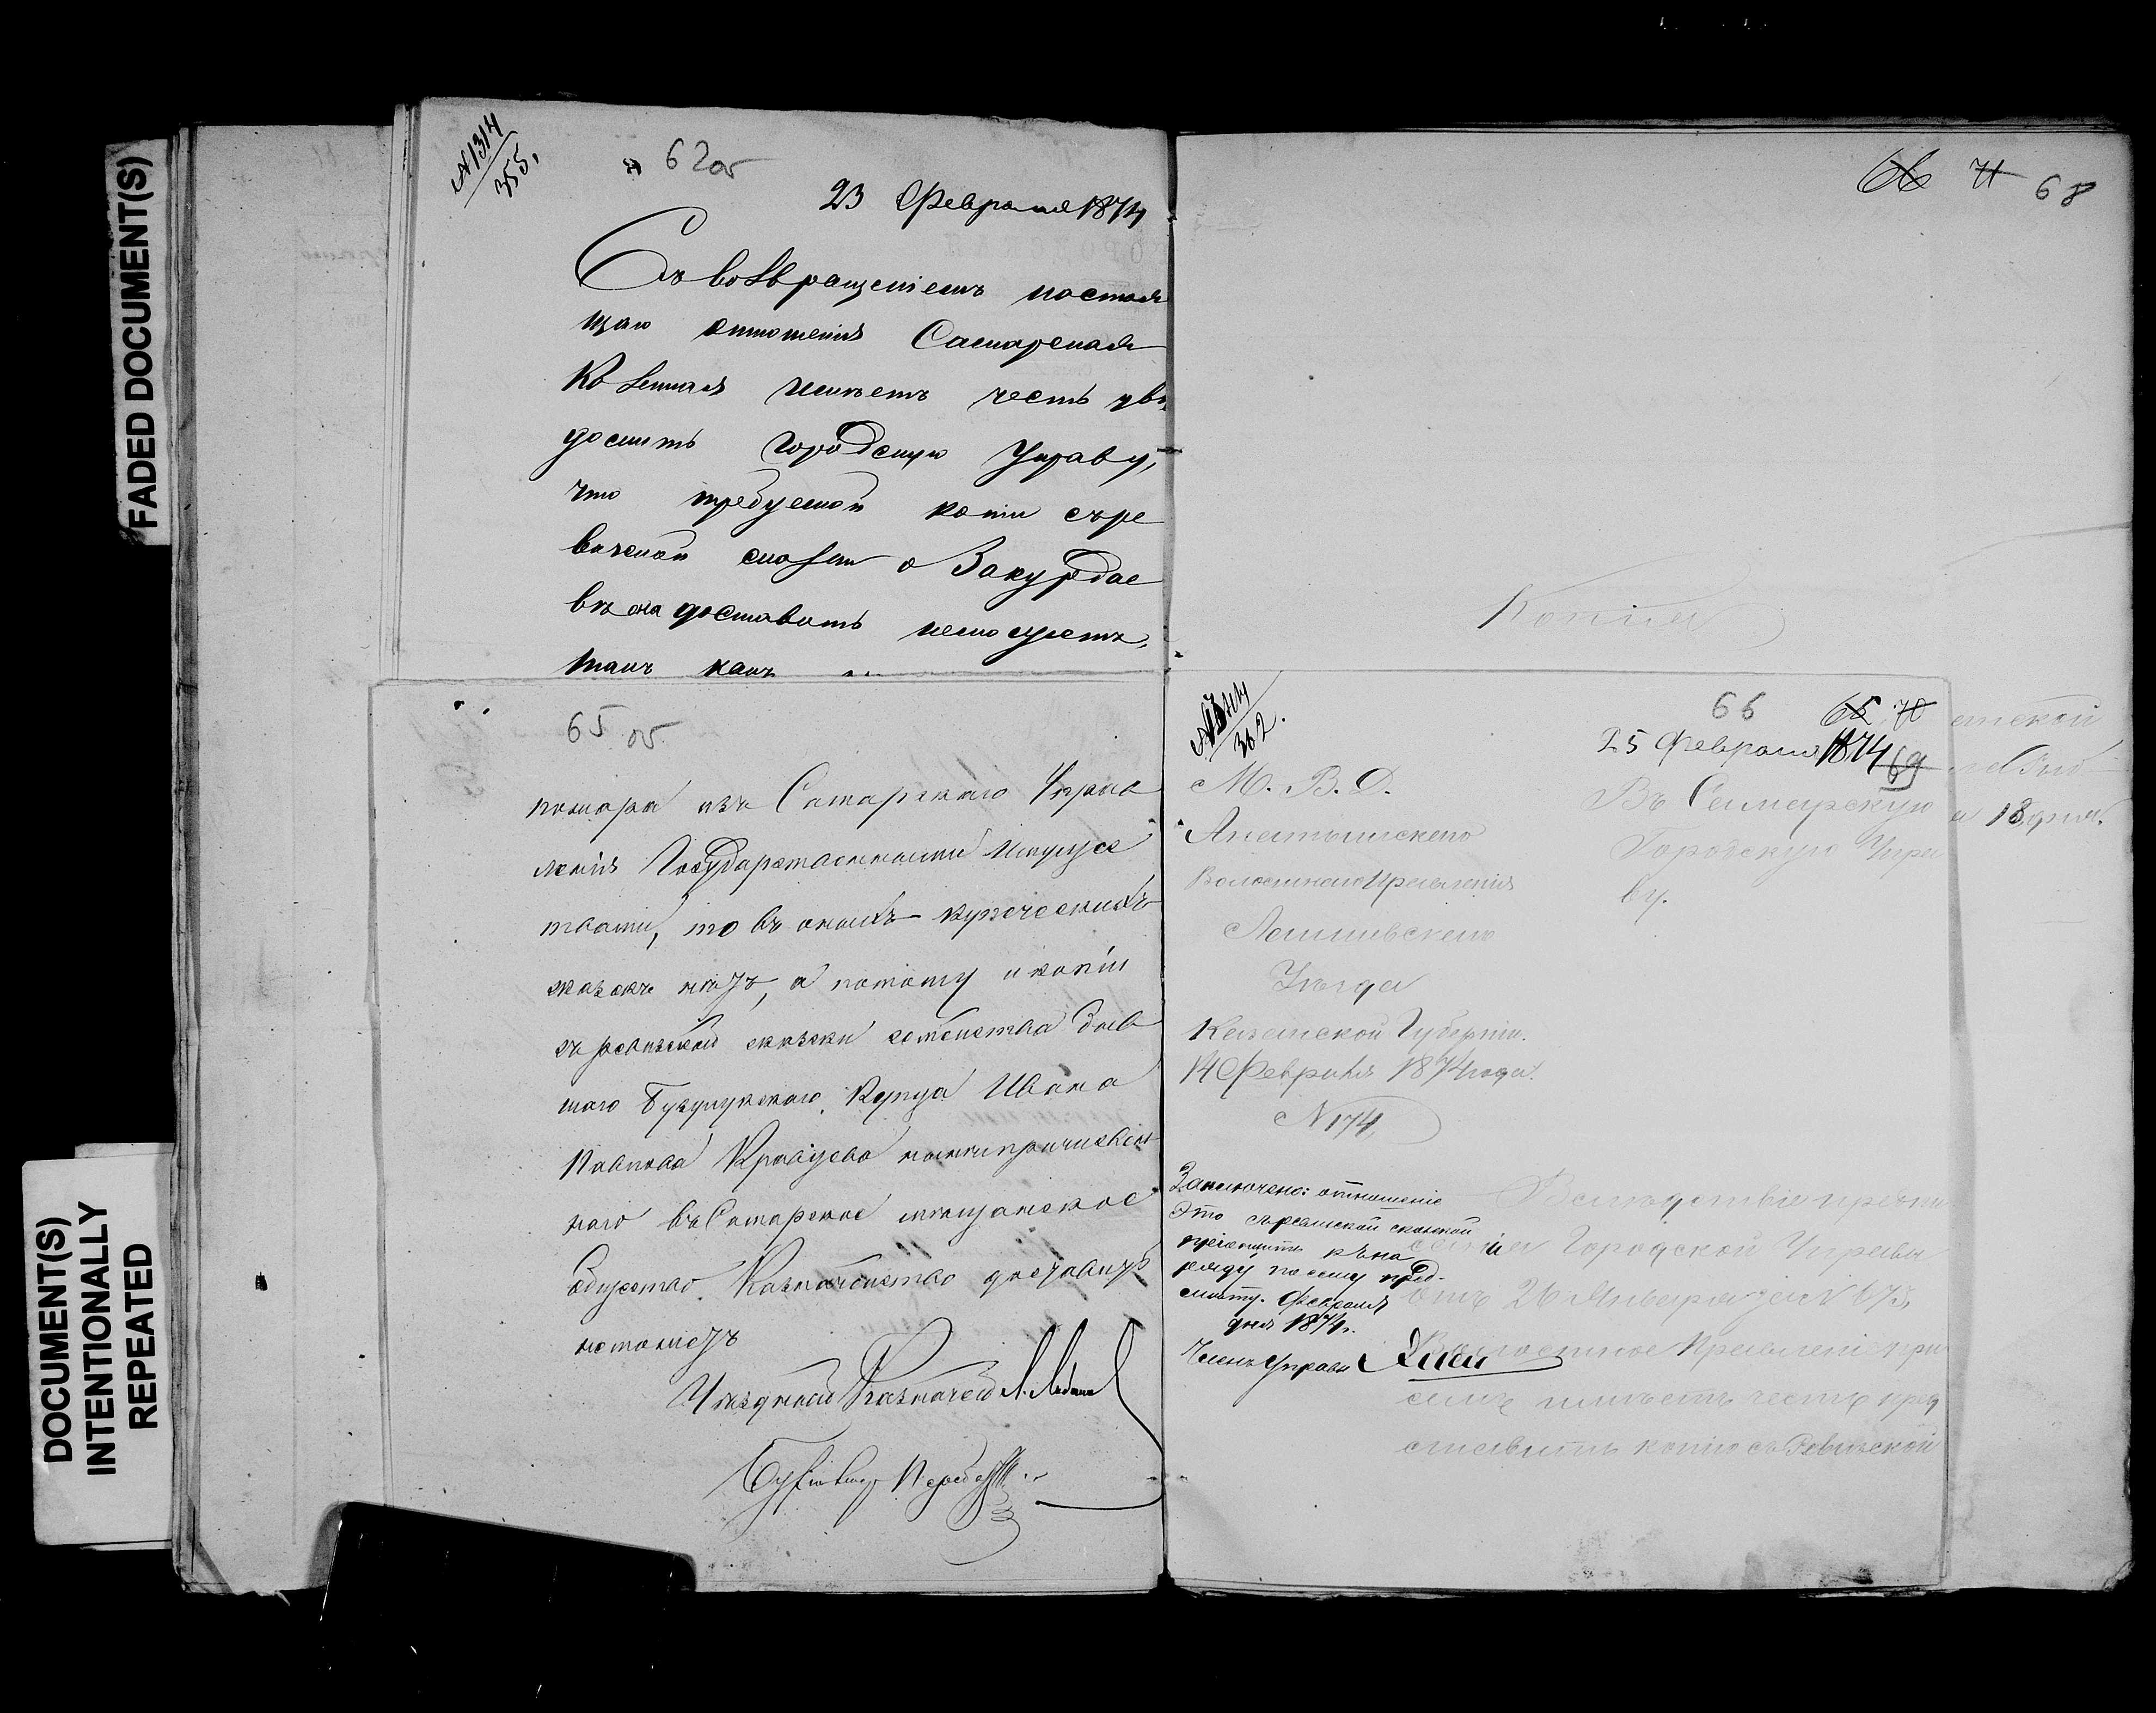 FADED DOCUMENT(S)
DOCUMENT(S)
INTENTIONALLY
REPEATED
№ 1314
355.
62 об
23 Февраля 1874
Съ возвращеніемъ настоя
щаго отношенія Самарская
Казенная имѣетъ честь увѣ
домить Городскую Управу,
что требуемой копіи съ ре
визской сказки о Закурдае
вѣ она доставить не можетъ,
такъ какъ
65 об.
изъ Самарскаго Управ
ленія Государственными Имущес
твами, то въ оныхъ купеческихъ
сказокъ нѣтъ, а потому и копіи
съ ревизской сказки семейства быв
шаго Бузулукскаго Купца Ивана
Павлова Кравцова нынѣ причислен
наго въ Самарское мѣщанское
общество Казначейство доставить
не можетъ
Уѣздный Казначей
Бухгалтеръ
66 71 68
Копія
362.
66 65 70
25 Февраля 1874
69
М. В. Д.
Волостнаго Правленія
Лаишевскаго
Уѣзда
Казанской Губерніи.
14 Февраля 1874 года.
№ 174
Въ Самарскую
Городскую Упра
ву.
Заключено: отношеніе
это съ ревизской сказкой
пріобщить къ на
ряду по сему пред-
мету. Февраля
дня 1874 г.
Членъ Управы
Вслѣдствіе
Городской Управы
отъ 26 Января за № 673,
Волостное Правленіе при
семъ имѣетъ честь пред
ставить копію съ Ревизской
18 дня.